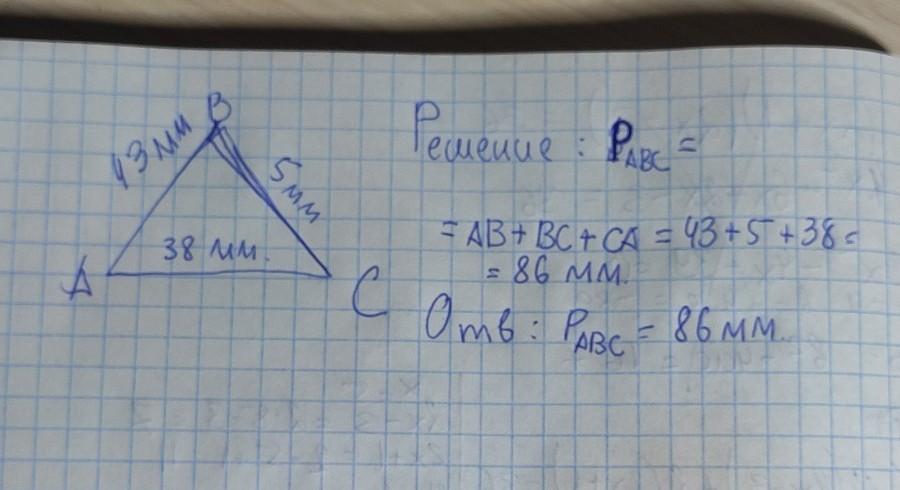 B
43 мм
5 мм
38 мм.
A
C
Решение : PABC =
= AB + BC + CA = 43 + 5 + 38 =
= 86 мм.
Отв : PABC = 86 мм.